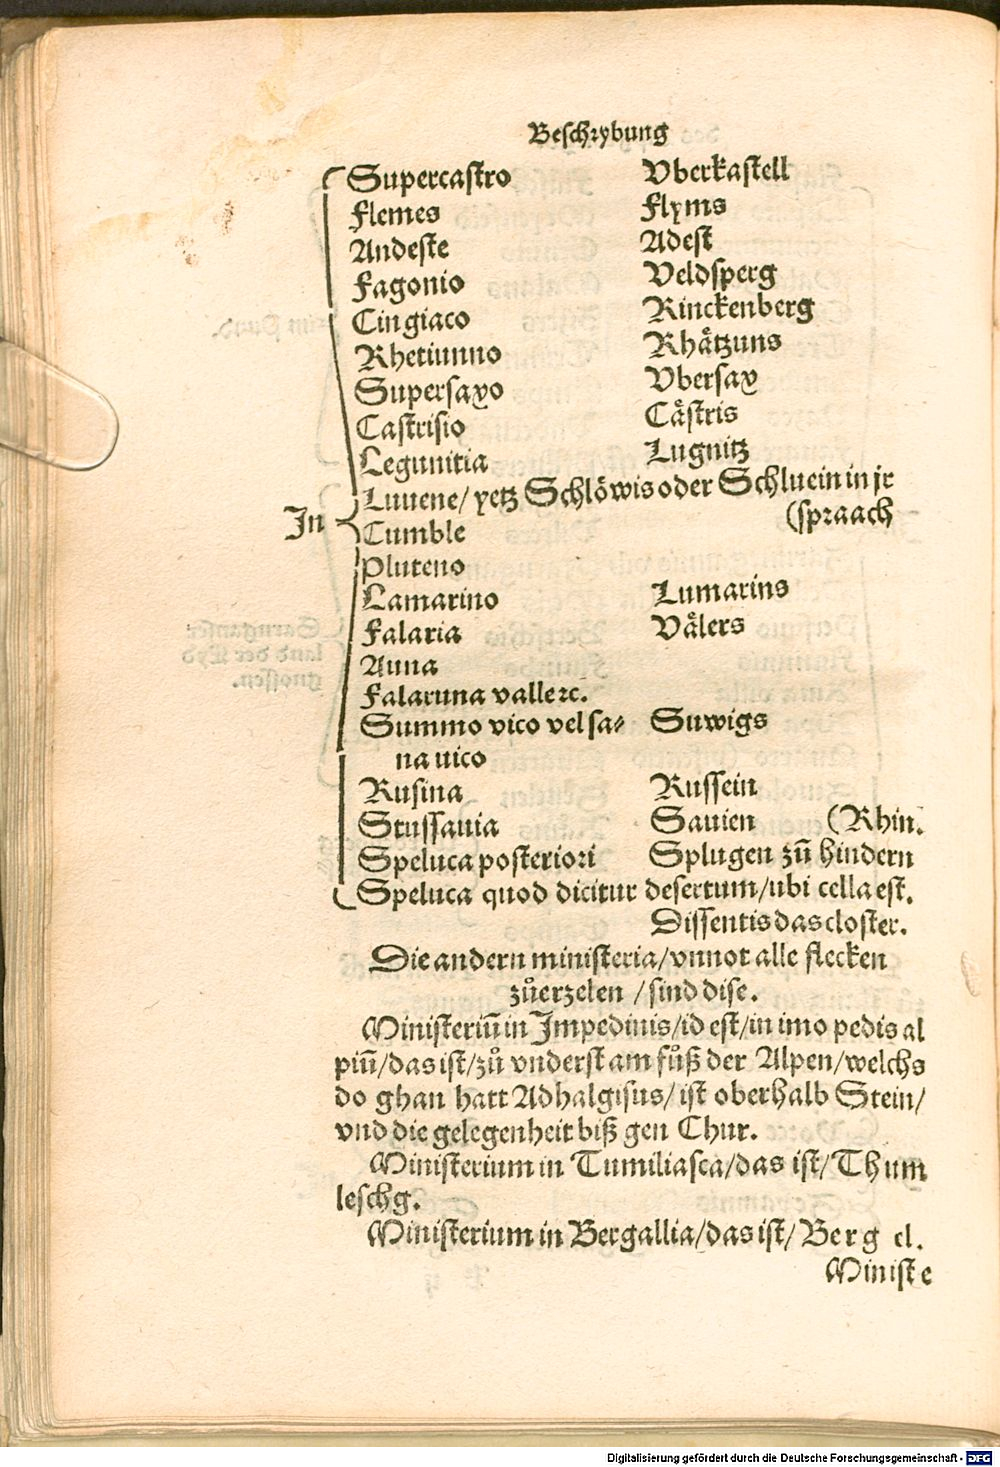 Beschrybung
Supercastro Vberkastell
Flemes Flyms
Andeste Adest
Fagonio Veldsperg
Cingiaco Rinckenberg
Rhetiunno Rhåtzuns
Supersaxo Vbersax
Castrisio Cåstris
Legunitia Lugnitz
Luuene/ yetz Schlöwis oder Schluein in jr
(spraach
In Cumble
Pluteno
Lamarino Lumarins
Falaria Vålers
Auna
Falaruna valle ꝛc.
Summo vico vel sa⸗ Suwigs
na uico
Rusina Russein
Stussauia Sauien (Rhin.
Speluca posteriori Splugen zů hindern
Speluca quod dicitur desertum/ubi cella est.
Dissentis das closter.
Die andern ministeria/vnnot alle flecken
zůerzelen /sind dise.
Ministeriū in Impedinis/id est/in imo pedis al
piū/das ist/zů vnderst am fůß der Alpen/welchs
do ghan hatt Adhalgisus/ist oberhalb Stein/
vnd die gelegenheit biß gen Chur.
Ministerium in Tumiliasca/das ist/Thum
leschg.
Ministerium in Bergallia/das ist/Berg el.
Ministe
Digitalisierung gefördert durch die Deutsche Forschungsgemeinschaft - DFG